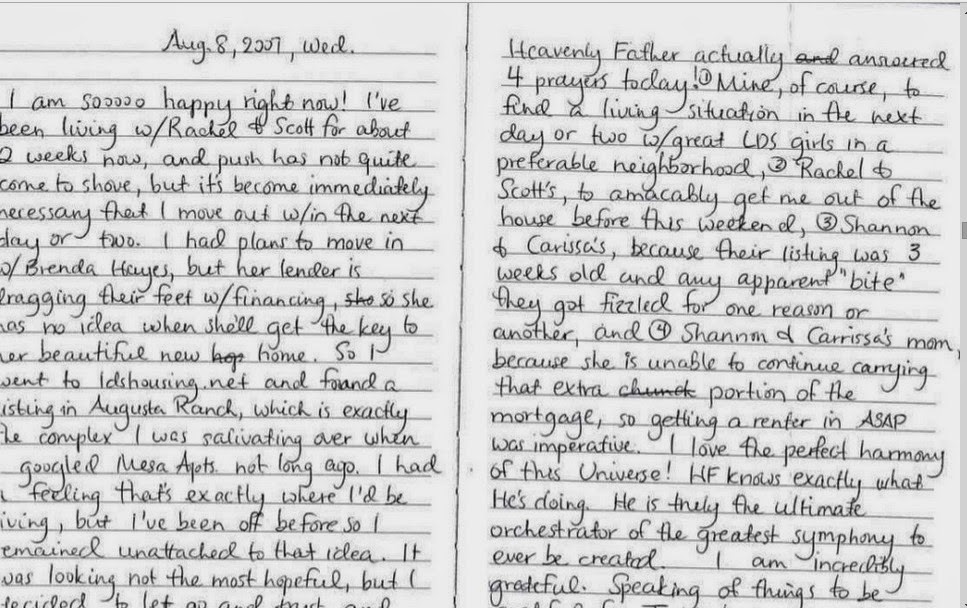 Aug. 8, 2007, Wed.
I am sooooo happy right now! I've
been living w/Rachel & Scott for about
2 weeks now, and push has not quite
come to shove, but it's become immediately
necessary that I move out w/in the next
day or two. I had plans to move in
w/Brenda Hayes, but her lender is
dragging their feet w/financing, she so she
has no idea when she'll get the key to
her beautiful new hop home. So I
went to ldshousing.net and found a
listing in Augusta Ranch, which is exactly
the complex I was salivating over when
googled Mesa Apts. not long ago. I had
a feeling that's exactly where I'd be
living, but I've been off before so I
remained unattached to that idea. It
was looking not the most hopeful, but I
decided to let go and trust and
Heavenly Father actually and answered
4 prayers today! ① Mine, of course, to
find a living situation in the next
day or two w/great LDS girls in a
preferable neighborhood, ② Rachel &
Scott's, to amacably get me out of the
house before this weekend, ③ Shannon
& Carissa's, because their listing was 3
weeks old and any apparent "bite"
they got fizzled for one reason or
another, and ④ Shannon & Carrissa's mom,
because she is unable to continue carrying
that extra chunck portion of the
mortgage, so getting a renter in ASAP
was imperative. I love the perfect harmony
of this Universe! HF knows exactly what
He's doing. He is truly the ultimate
orchestrator of the greatest symphony to
ever be created. I am incredibly
grateful. Speaking of things to be